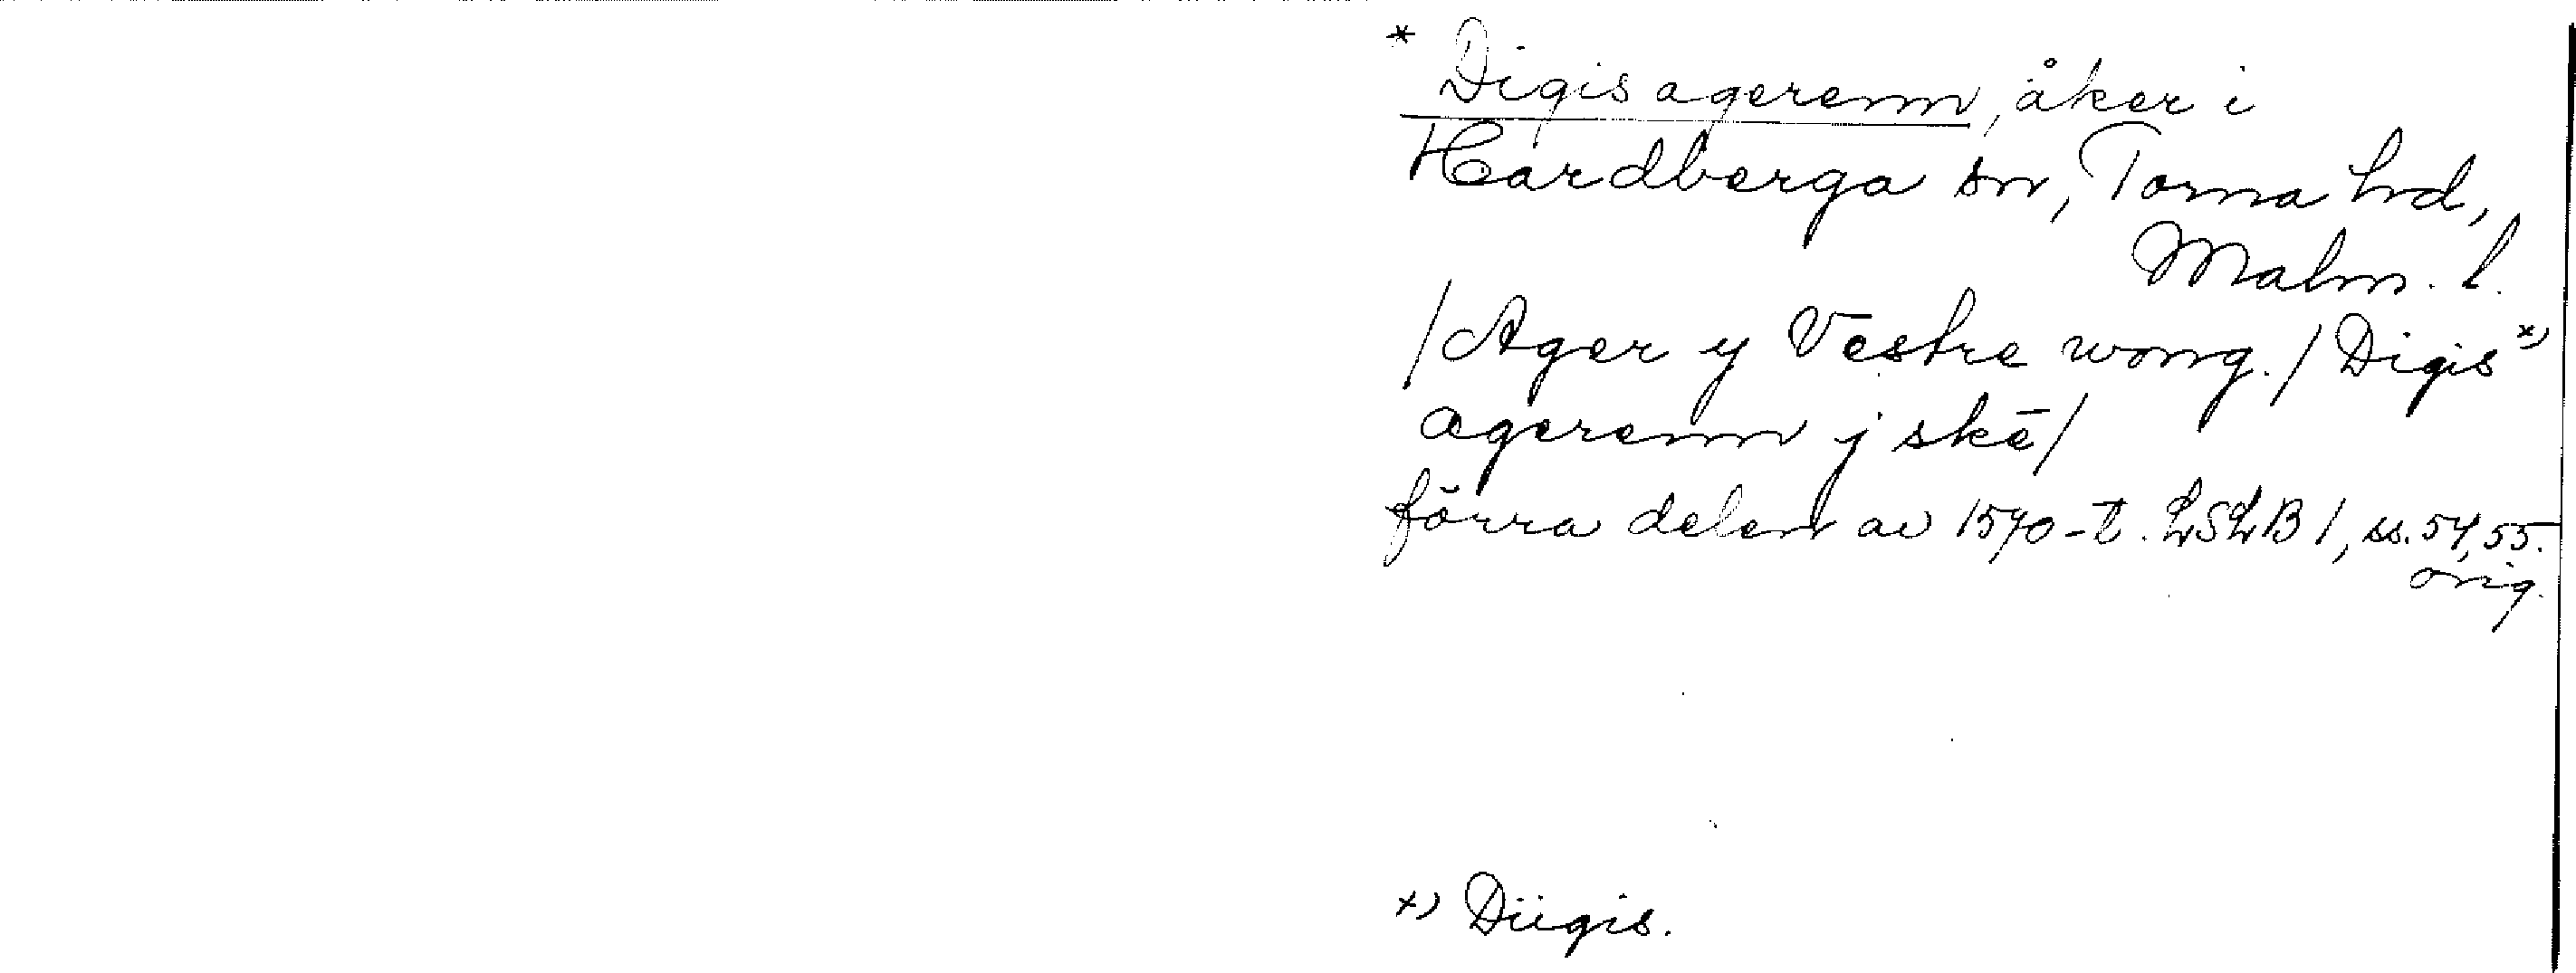 * Digis agerenn, åker i
Hardberga sn, Torna hd,
Malm. l.
/Ager y Vestre wong./ Digis *)
agerenn j skē/
förra delen av 1570-t. LSLB 1, ss. 54, 55.
orig.
*) Diigis.